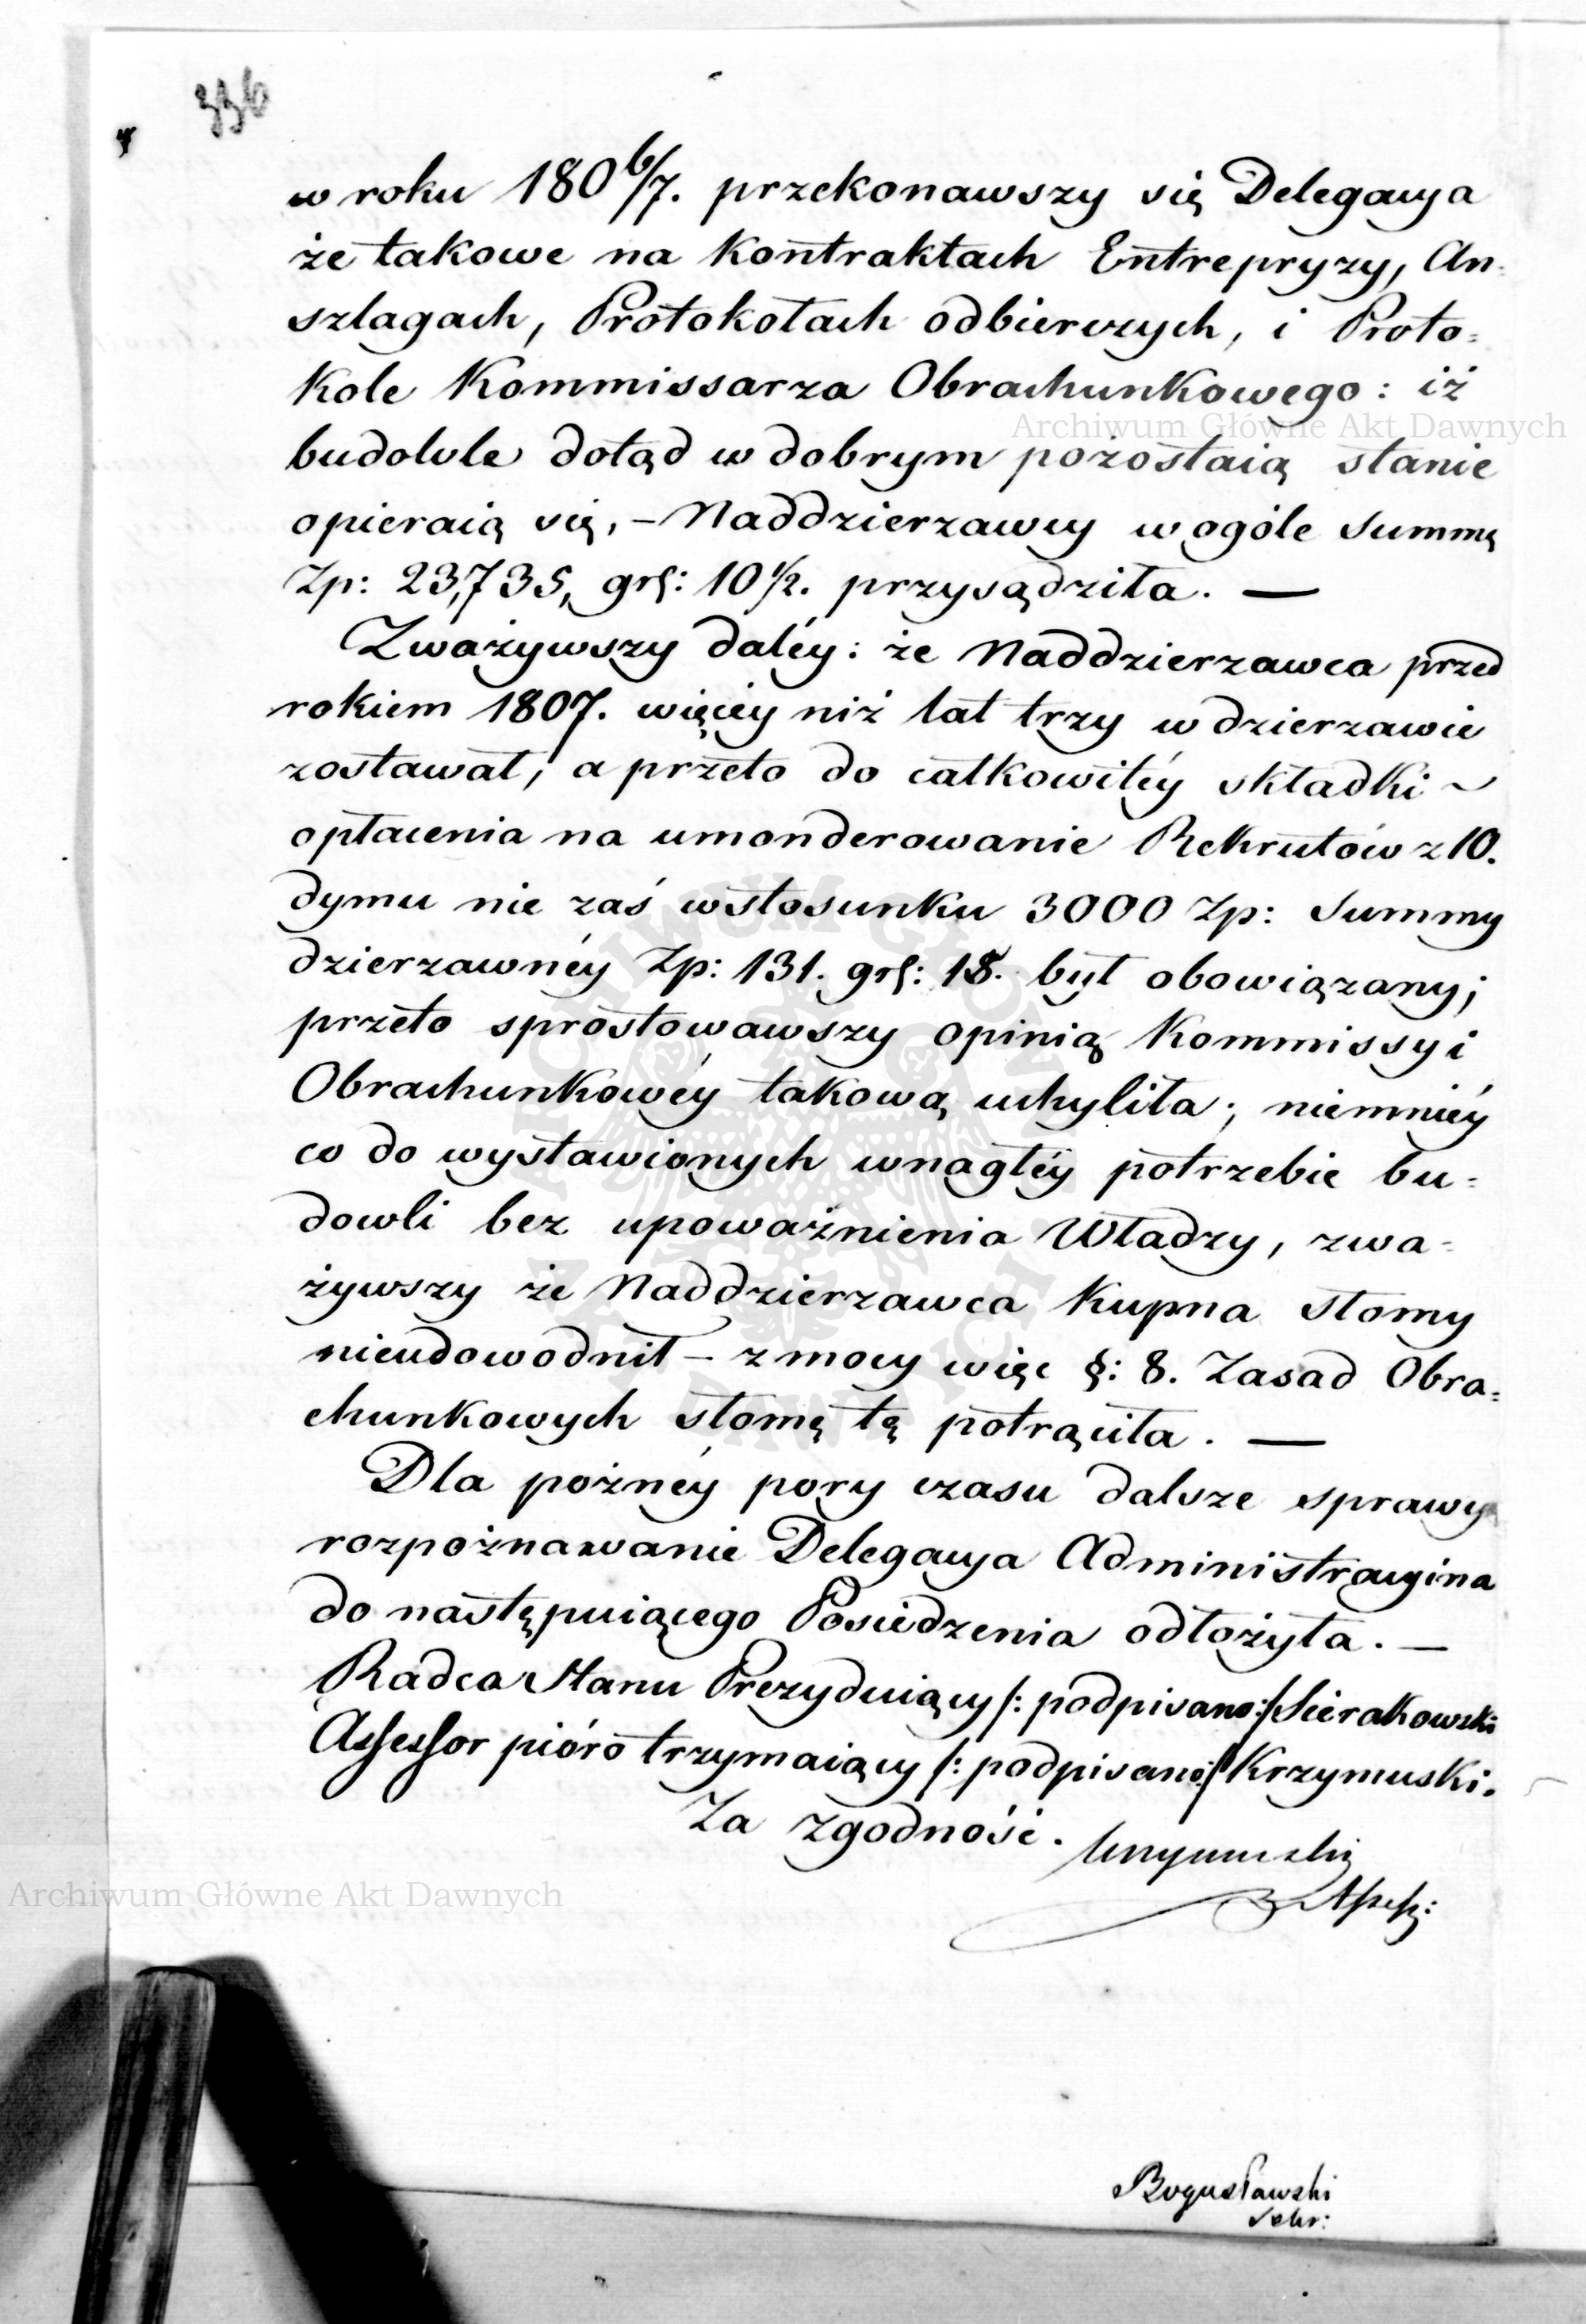 336
w roku 180 6/7. przekonawszy się Delegacya
że takowe na Kontraktach Entrepryzy, An-
szlagach, Protokołach odbierczych, i Proto-
kole Kommissarza Obrachunkowego: iż
budowle dotąd w dobrym pozostaią stanie
opieraią się, – Naddzierzawcy w ogóle Summę
Zp: 23,735, grſ: 10 1/2. przysądziła. —
Zważywszy daléy: że Naddzierzawca przed
rokiem 1807. więcey niż lat trzy w dzierzawie
zostawał, a przeto do całkowitéy składki ~
opłacenia na umonderowanie Rekrutów z 10.
dymu nie zaś w stosunku 3000 Zp: Summy
dzierzawnéy Zp: 131. grſ: 18. był obowiązany;
przeto sprostowawszy opinią Kommissyi
Obrachunkowéy takową uchyliła; niemniéy
co do wystawionych w nagłéy potrzebie bu-
dowli bez upoważnienia Władzy, zwa-
żywszy że Naddzierzawca Kupna słomy
nieudowodnił – z mocy więc §: 8. Zasad Obra-
chunkowych słomę tę potrąciła. —
Dla poźnéy pory czasu dalsze sprawy
rozpoznawanie Delegacya Administracyina
do następuiącego Posiedzenia odłożyła. —
Radca Stanu Prezyduiący /: podpisano :/ Sierakowski
Aſseſsor pióro trzymaiący /: podpisano :/ Krzymuski.
Za zgodność. Krzymuski
Aſseſs:
Bogusławski
Sekr:
Archiwum Główne Akt Dawnych
Archiwum Główne Akt Dawnych